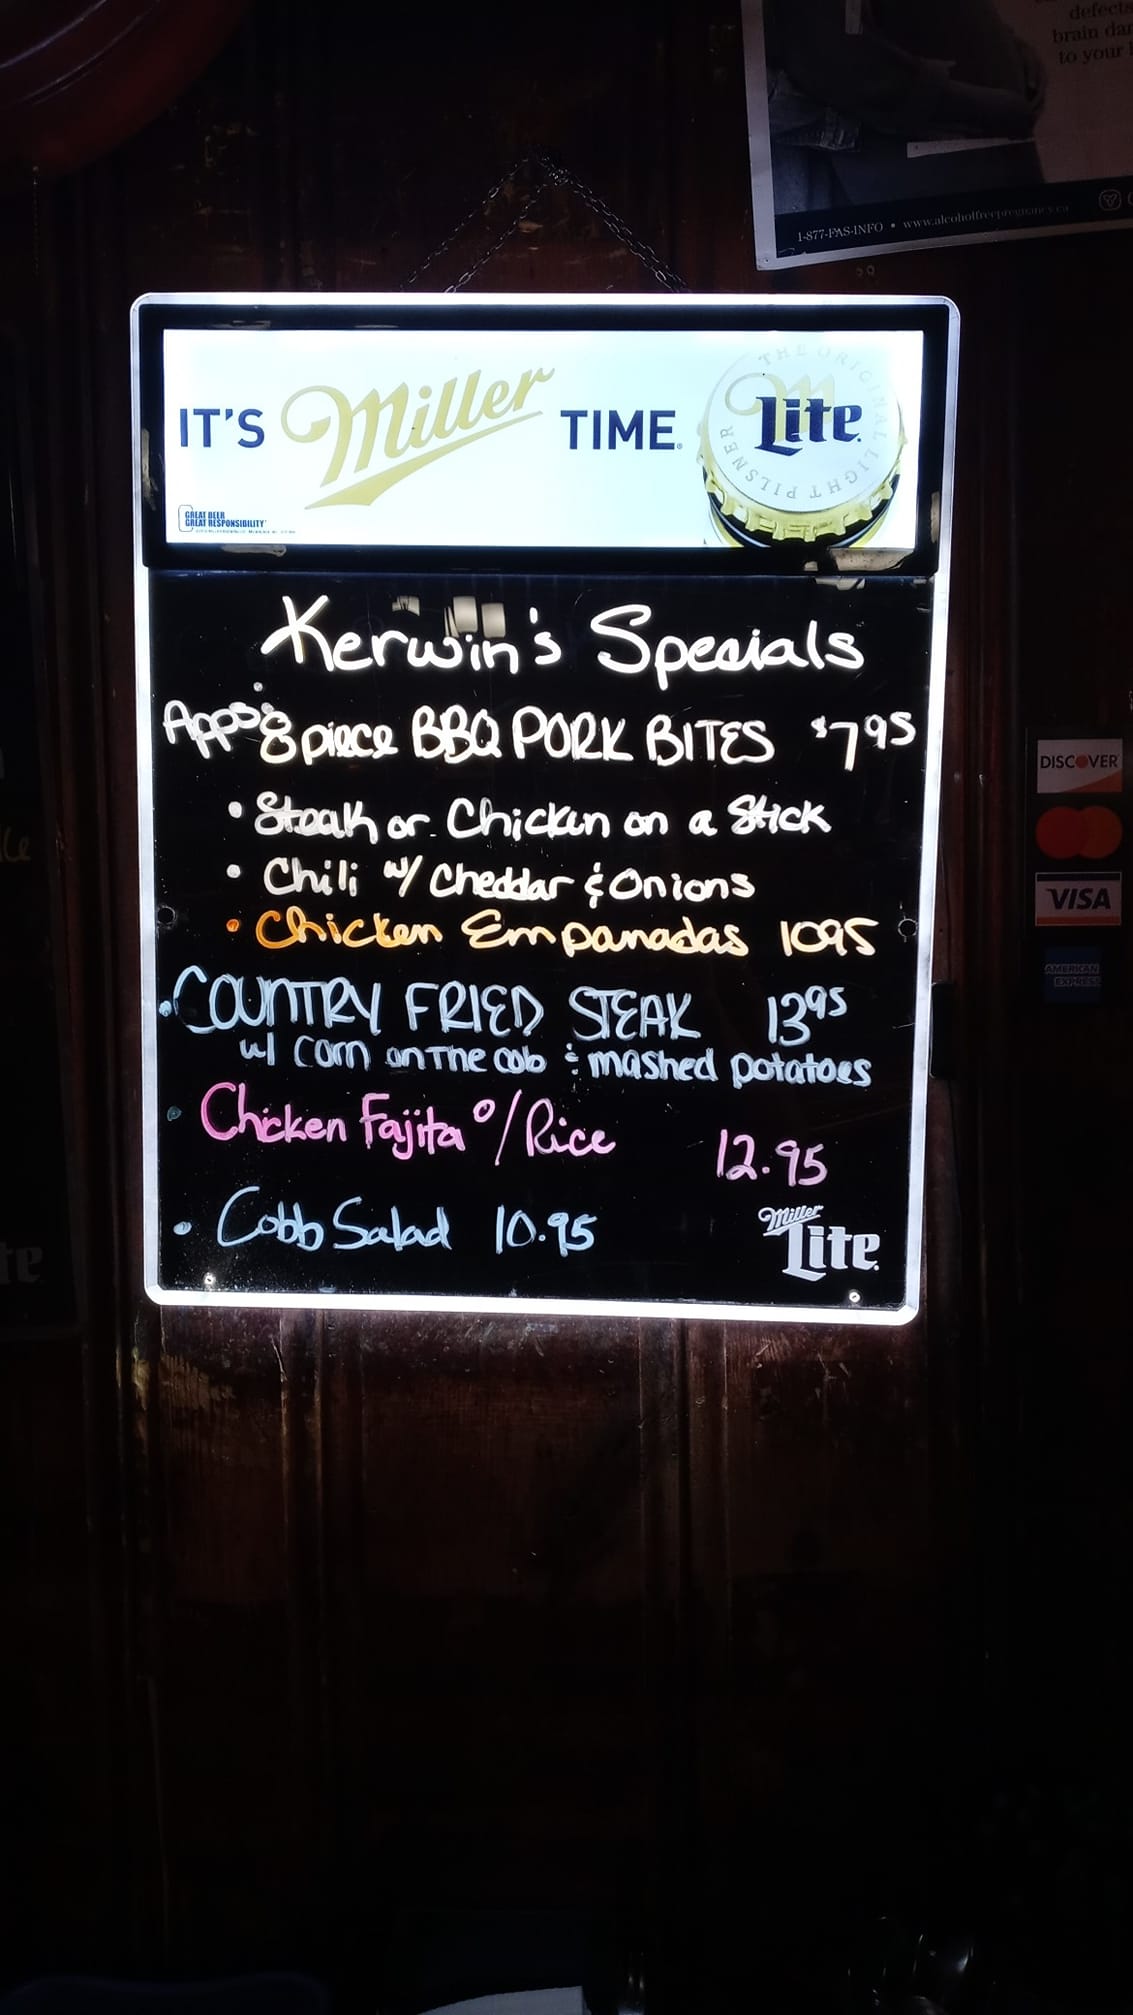 defects
brain dam
to your
1-877-FAS-INFO • www.alcoholfreepregnancy.ca
IT'S Miller TIME.
THE ORIGINAL LIGHT PILSNER
Lite
GREAT BEER
GREAT RESPONSIBILITY
Kerwin's Specials
Apps: 8 piece BBQ PORK BITES $7.95
• Steak or Chicken on a Stick
• Chili w/ Cheddar & Onions
• Chicken Empanadas 1095
• COUNTRY FRIED STEAK 1395
w/ Corn on The cob & mashed potatoes
• Chicken Fajita o/Rice
12.95
• Cobb Salad 10.95
Miller
Lite
DISCOVER
VISA
AMERICAN
EXPRESS